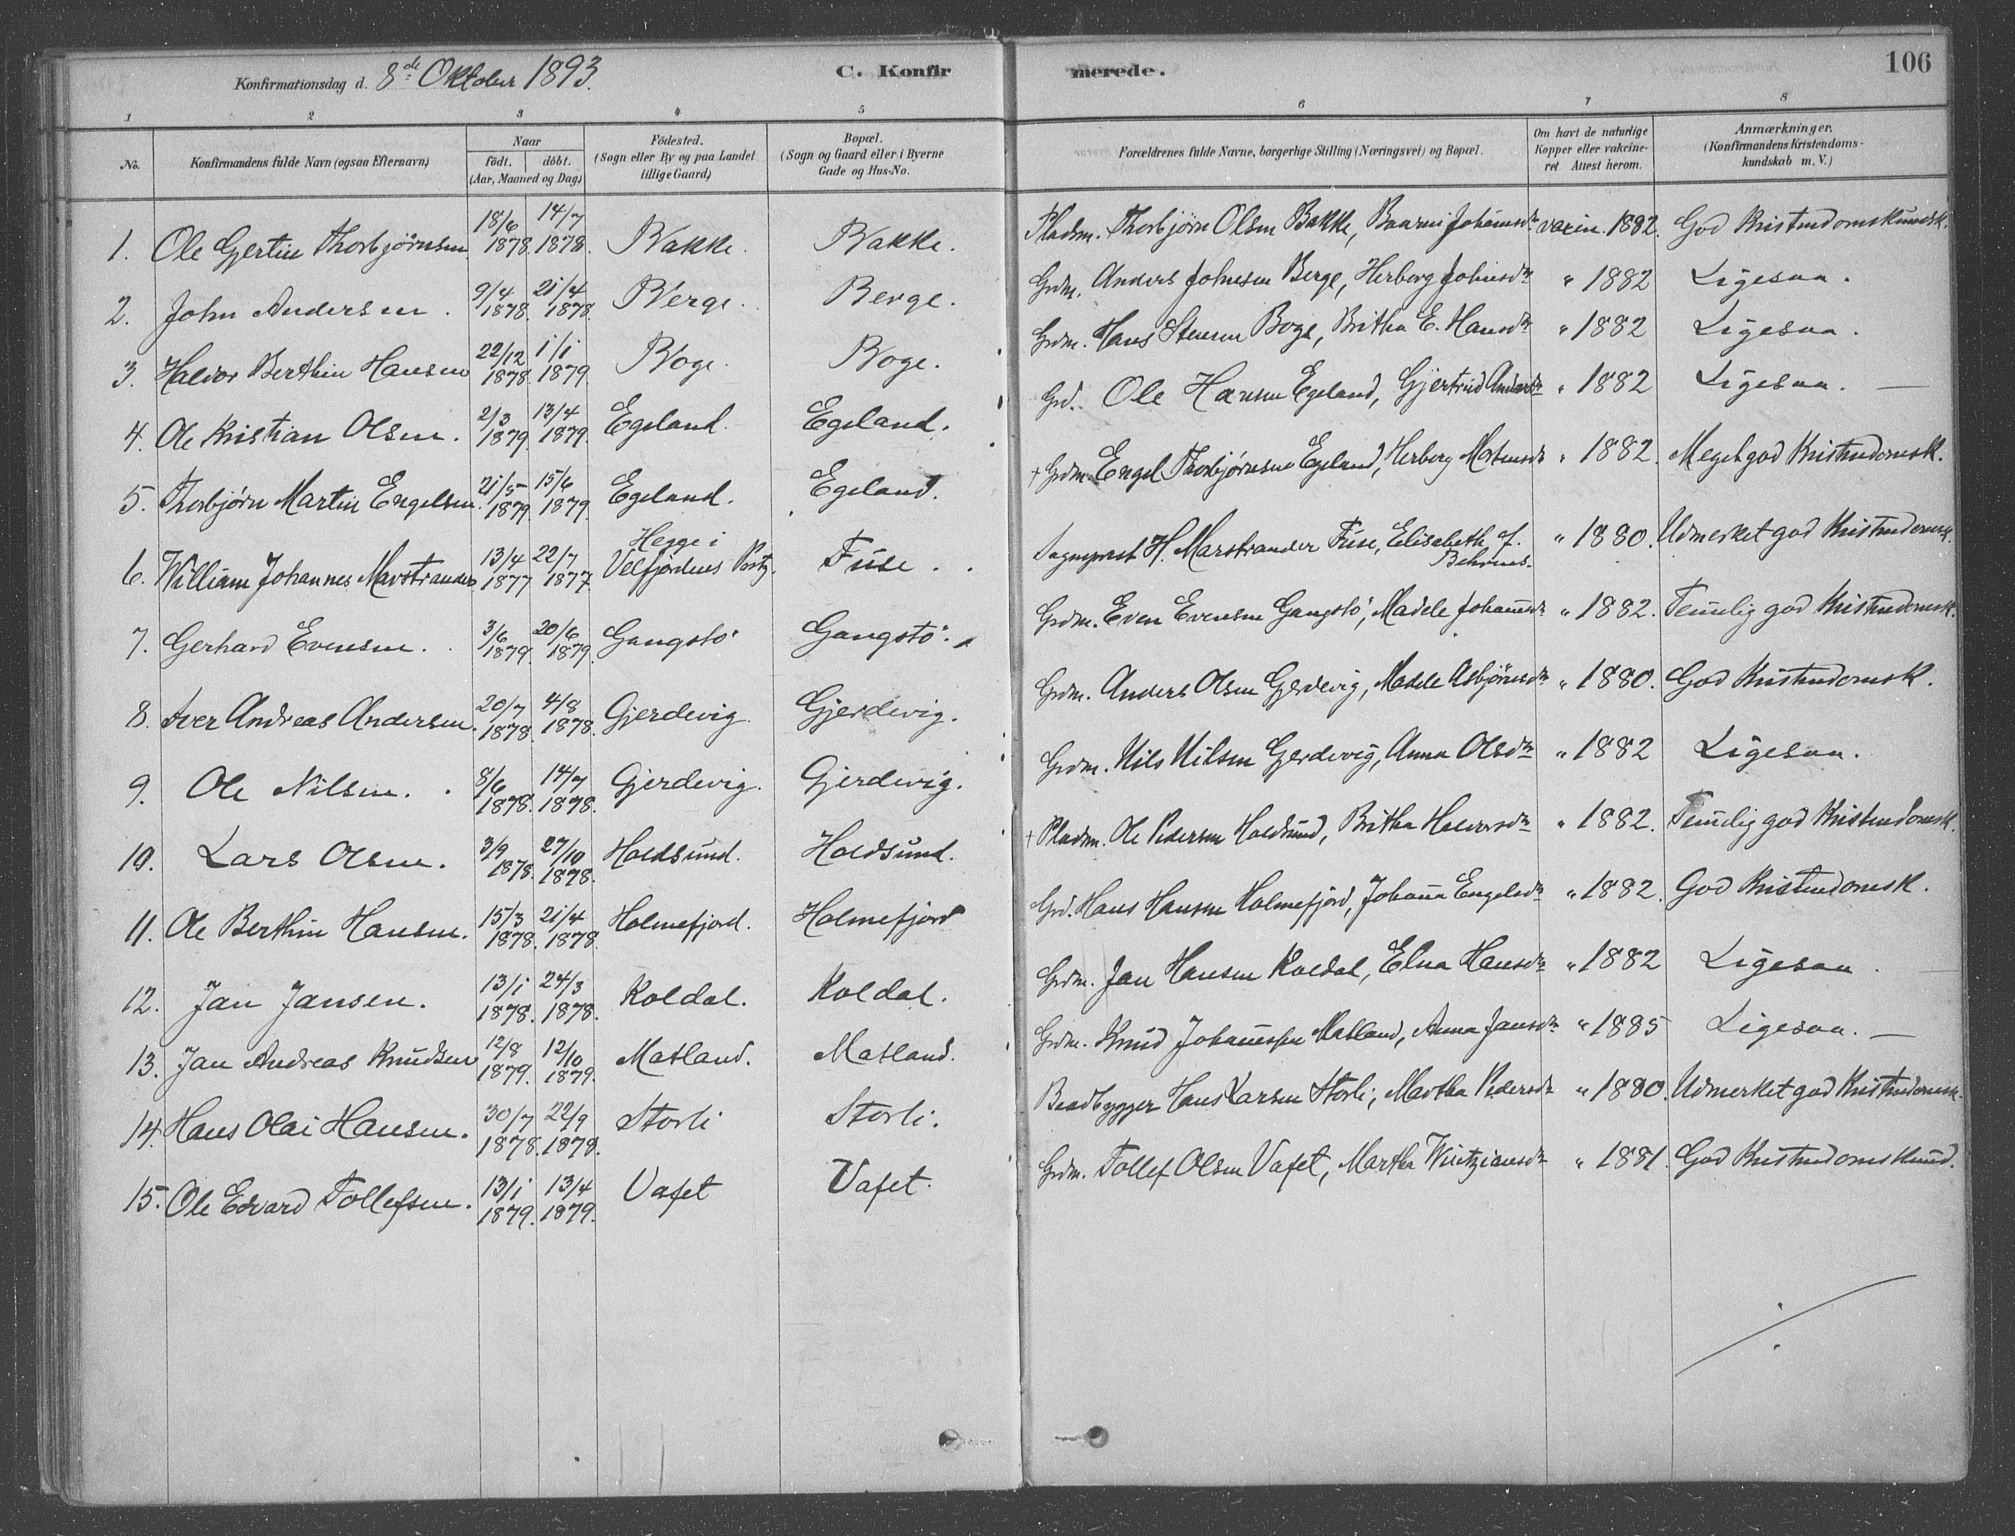 Konfirmationsdag d. 8de Oktober 1893. C. Konfirmerede. 106
1 2 3 4 5 6 7 8
No. Konfirmandens fulde Navn (ogsaa Efternavn) Naar födt. döbt. (Aar, Maaned og Dag) Födested. (Sogn eller By og paa Landet tillige Gaard) Bopæl. (Sogn og Gaard eller i Byerne Gade og Hus-No. Forældrenes fulde Navne, borgerlige Stilling (Næringsvei) og Bopæl. Om havt de naturlige Kopper eller vakcineret Attest herom. Anmærkninger. (Konfirmandens Kristendomskundskab m. V.)
1. Ole Gjertin Thorbjørnsen 18/6 1878. 14/7 1878. Bakke. Bakke. Pladsm. Thorbjørn Olsen Bakke, Johansdr vaxin. 1882. God Kristendomskundsk.
2. John Andersen. 9/4 1878. 21/4 1878. Berge. Berge. Grdm. Anders Johnsen Berge, Herborg Johnsdr " 1882 Ligesaa.
3. Halvor Berthin Hansen 22/12 1878. 1/1 1879. Boge. Boge. Grdm. Hans Stensen Boge, Britha E. Hansdr " 1882 Ligesaa.
4. Ole Kristian Olsen. 2/3 1879. 13/4 1879. Egeland. Egeland. Grd. Ole Hansen Egeland, Gjertrud Andersdr " 1882 Ligesaa. —
5. Thorbjørn Martin Engelsen. 21/5 1879. 15/6 1879. Egeland. Egeland. + Grdm. Engel Thorbjørnsen Egeland, Herborg Mortensdr " 1882. Meget god Kristendomsk.
6. William Johannes Marstrander 13/4 1877 22/7 1877. Hegge i Velfjordens Prstg. Fuse. Sogneprest H. Marstrander Fuse, Elisabeth f. Behrens. " 1880. Udmerket god Kristendomsk.
7. Gerhard Evensen. 3/6 1879. 20/6 1879. Gangstö Gangstö. Grdm. Even Evensen Gangstö, Madele Johannsdr " 1882. Temmelig god Kristendomsk.
8. Iver Andreas Andersen. 20/7 1878. 4/8 1878. Gjerdevig. Gjerdevig. Grdm. Anders Olsen Gjerdevig, Madele Asbjörnsdr " 1880. God Kristendomsk.
9. Ole Nilsen. 8/6 1878. 14/7 1878. Gjerdevig. Gjerdevig. Grdm. Nils Nilsen Gjerdevig, Anna Olsdr " 1882 Ligesaa.
10. Lars Olsen. 3/9 1878. 27/10 1878. Holdsund. Holdsund. + Pladsm. Ole Pedersen Holdsund, Britha Halvorsdr " 1882. Temmelig god Kristendomsk.
11. Ole Berthin Hansen. 15/3 1878. 21/4 1878. Holmefjord. Holmefjord Grd. Hans Hansen Holmefjord, Johanna Engelsdr " 1882. God Kristendomsk.
12. Jan Jansen. 13/1 1878. 24/3 1878. Koldal. Koldal. Grdm. Jan Hansen Koldal, Elna Hansdr " 1882 Ligesaa.
13. Jan Andreas Knudsen 12/8 1879. 12/10 1879. Matland. Matland. Grdm. Knud Johannessen Matland, Anna Jansdr " 1885 Ligesaa. —
14. Hans Olai Hansen. 30/7 1878. 22/9 1878. Storli Storli. Baadbygger Hans Larsen Storli, Martha Pedersdr " 1880. Udmerket god Kristendomsk.
15. Ole Edvard Tollefsen. 13/1 1879. 13/4 1879. Vaset Vaset. Grdm. Tollef Olsen Vaset, Martha " 1881. God Kristendomskund.